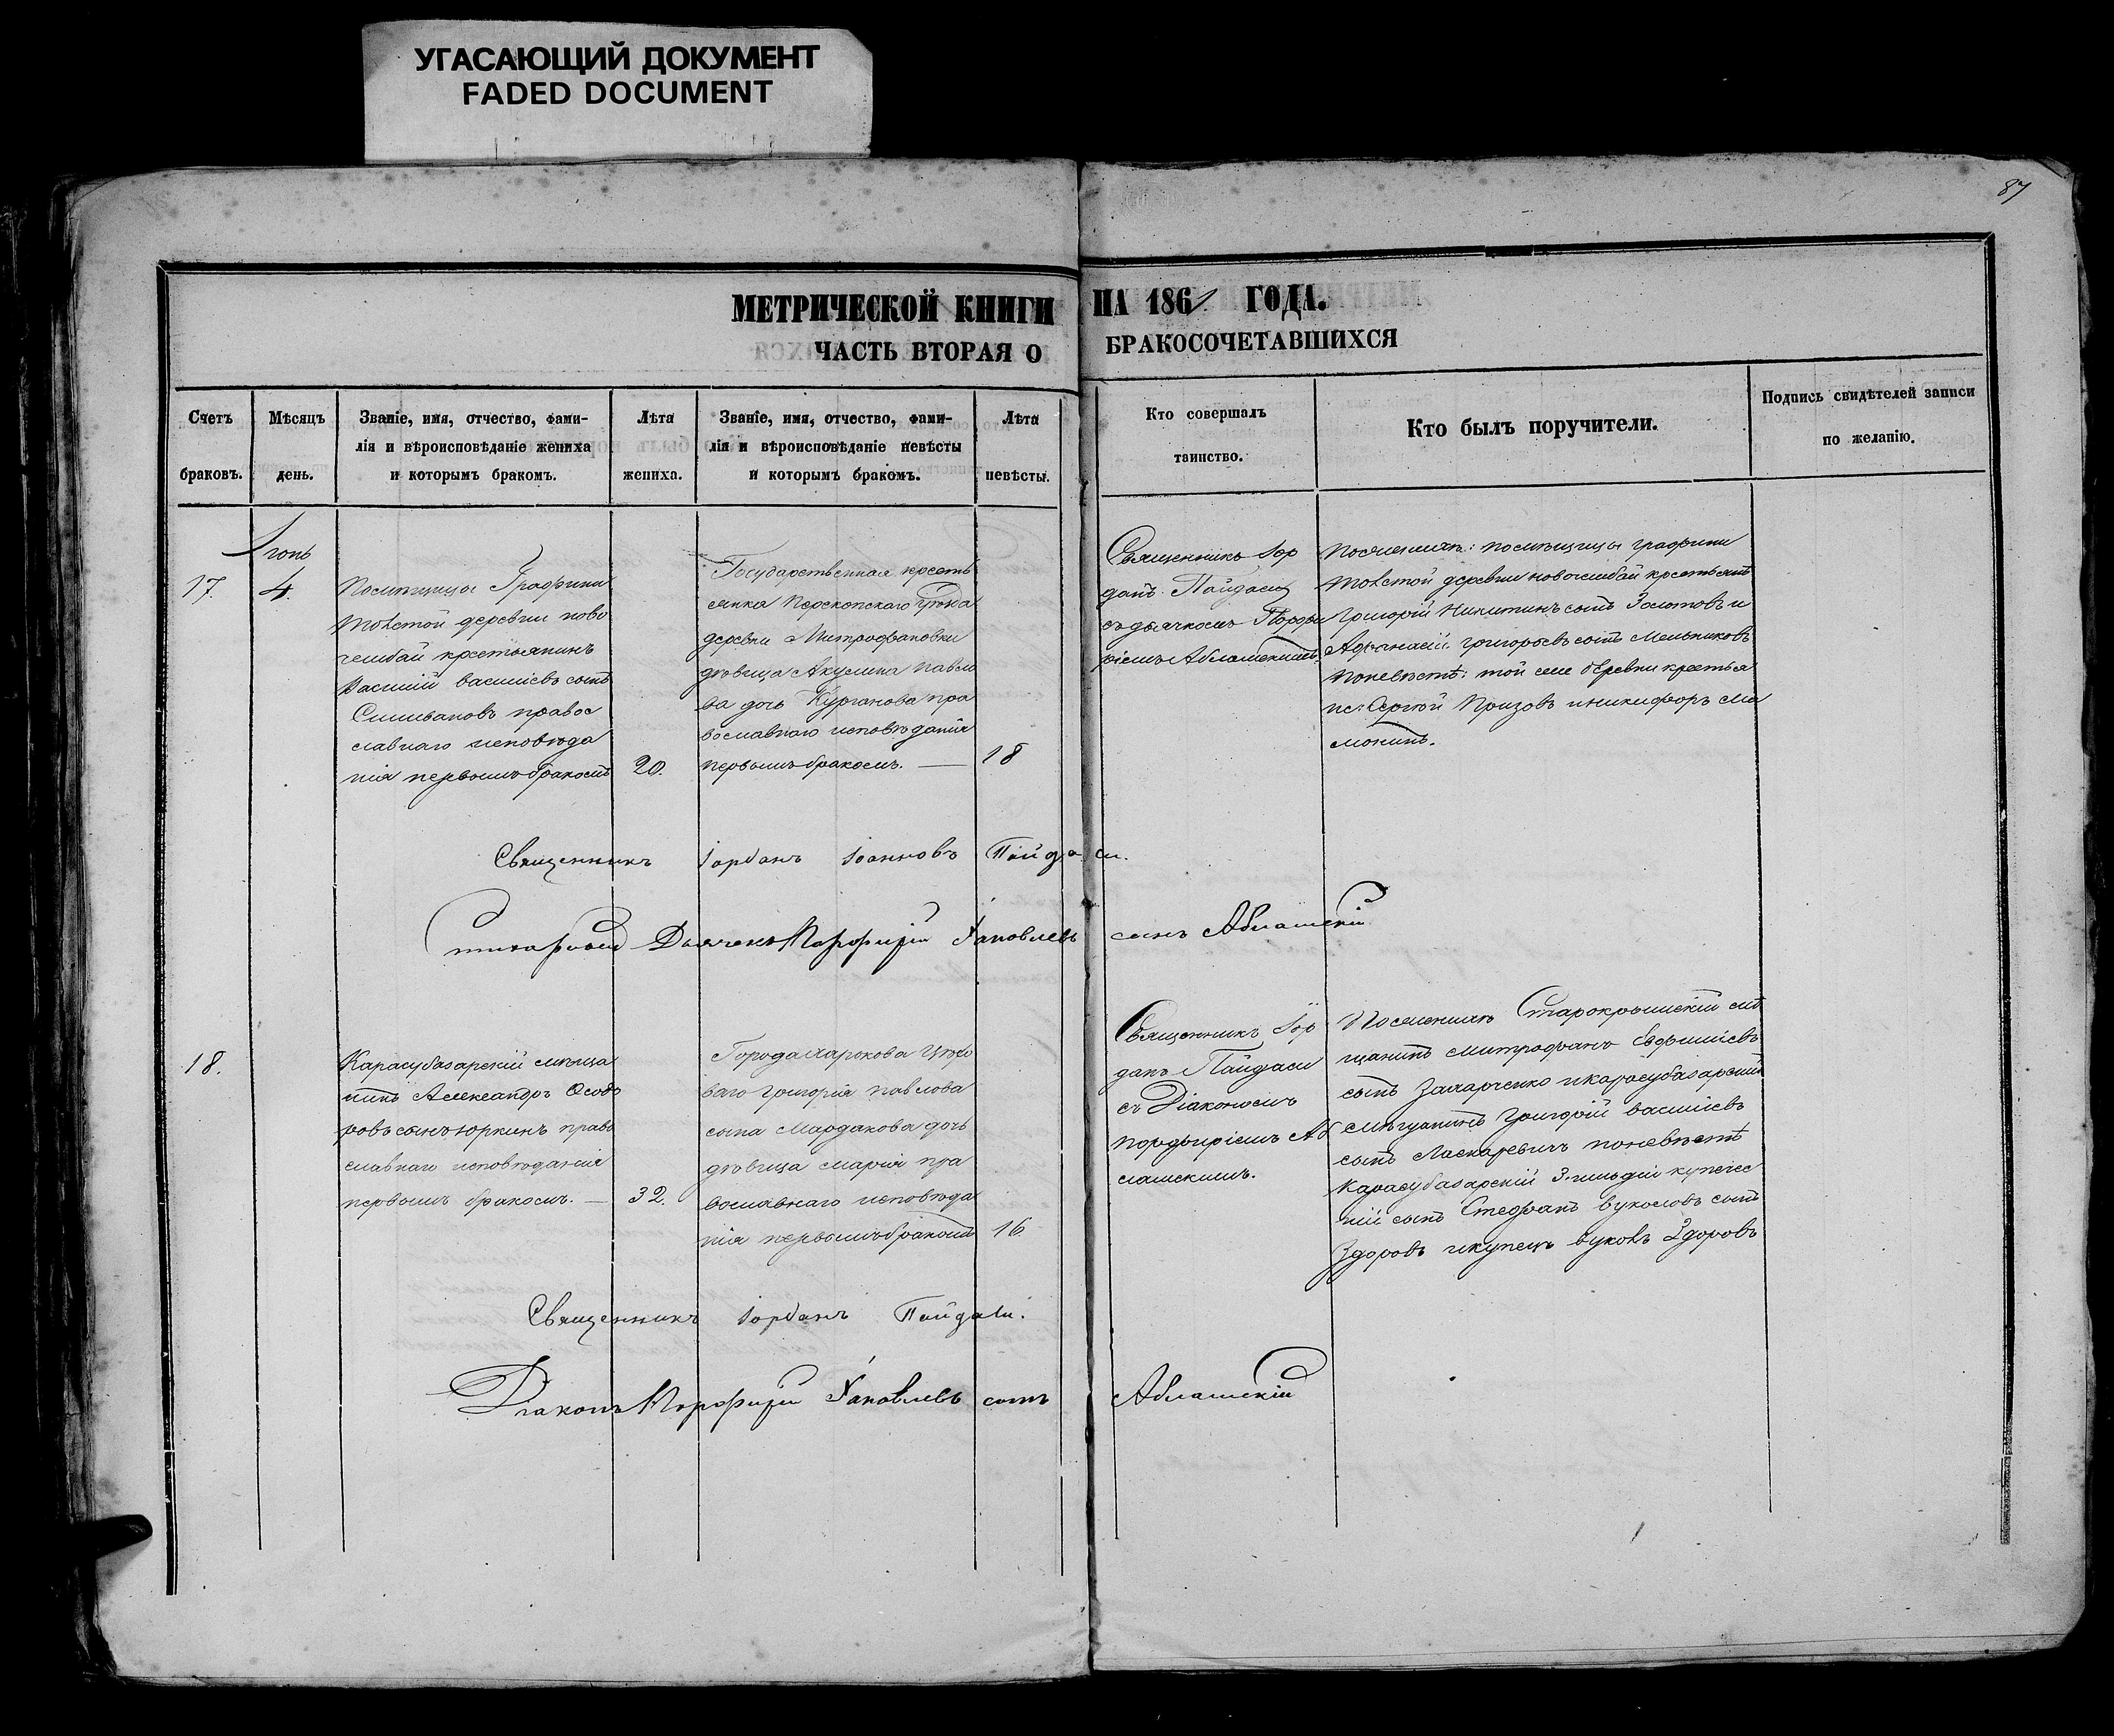 УГАСАЮЩИЙ ДОКУМЕНТ
FADED DOCUMENT
87
МЕТРИЧЕСКОЙ КНИГИ НА 1861. ГОДА.
ЧАСТЬ ВТОРАЯ О БРАКОСОЧЕТАВШИХСЯ
Счетъ
браковъ.
Мѣсяцъ
день.
Званіе, имя, отчество, фами-
лія и вѣроисповѣданіе жениха
и которымъ бракомъ.
Лѣта
жениха.
Званіе, имя, отчество, фами-
лія и вѣроисповѣданіе невѣсты
и которымъ бракомъ.
Лѣта
невѣсты.
Кто совершалъ
таинство.
Кто былъ поручители.
Подпись свидѣтелей записи
по желанію.
17.
4.
Помѣщицы Графини
Толстой деревни ново
крестьянинъ
Василій Васильевъ сынъ
Силивановъ правос
лавнаго исповѣда
нія первымъ бракомъ
20.
Государственная кресть
янка Перекопскаго уѣзда
деревни Митрофановки
дѣвица Акулина Павло
ва дочь Курганова пра
вославнаго исповѣданія
первымъ бракомъ.
18
Священникъ Іор
данъ Пайдаси
съ дьячкомъ Порфи
ріемъ Аблашскимъ.
По женихѣ: помѣщицы графини
Толстой деревни крестьянъ
Григорій Никитинъ сынъ Золотовъ и
Афанасій Григорьевъ сынъ Мельниковъ
По невѣстѣ: той же деревни крестья
не: Сергѣй Призовъ и Никифоръ Ма
монинъ.
Священникъ Іорданъ Іоанновъ Пайдаси.
Стихарный Дьячекъ Порфирій Яковлевъ сынъ Аблашскій
18.
Карасубазарскій мѣща
нинъ Александръ Ѳеодо
ровъ сынъ Юркинъ право
славнаго исповѣданія
первымъ бракомъ.
32.
Города Харькова Цехо
ваго Григорія Павлова
сына Мардакова дочь
дѣвица Марія пра
вославнаго исповѣда
нія первымъ бракомъ
16
Священникъ Іор
данъ Пайдаси
съ Діакономъ
Порфиріемъ Аб
лашскимъ.
По женихѣ Старокрымскій мѣ
щанинъ Митрофанъ Евфиміевъ
сынъ Захарченко и карасубазарскій
мѣщанинъ Григорій Васильевъ
сынъ Ласкаревичъ по невѣстѣ
Карасубазарскій 3. гильдіи купечес
кій сынъ Стефанъ Вуколовъ сынъ
Здоровъ и купецъ Вуколъ Здоровъ
Священникъ Іорданъ Пайдаси.
Діаконъ Порфирій Яковлевъ сынъ Аблашскій